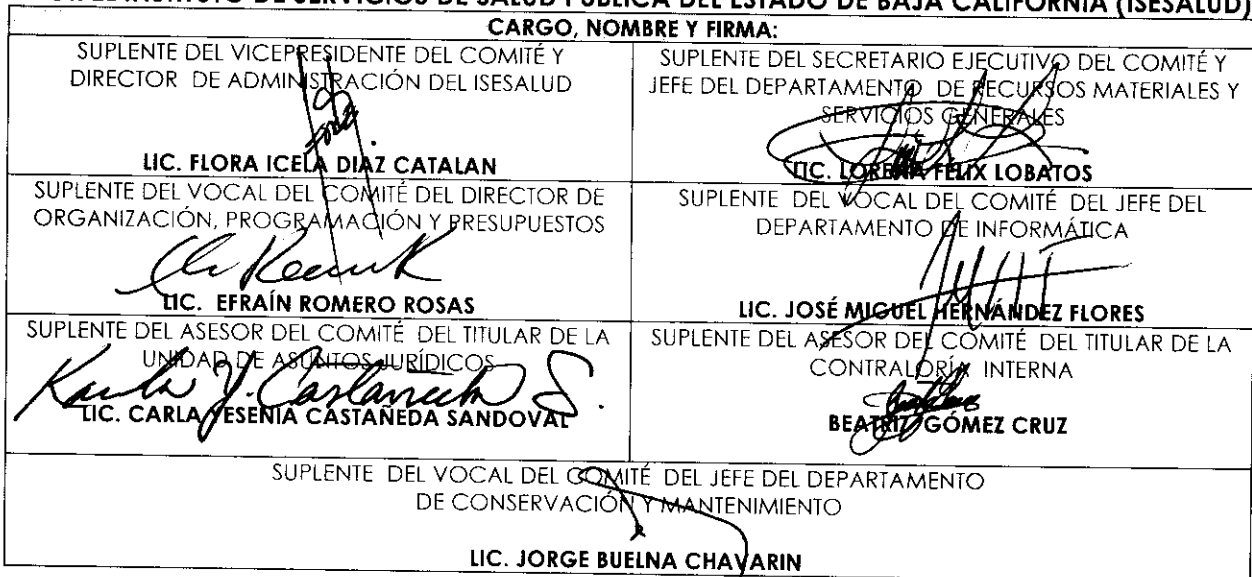 EL INSTITUTO DE SERVICIOS DE SALUD PÚBLICA DEL ESTADO DE BAJA CALIFORNIA (ISESALUD)
CARGO, NOMBRE Y FIRMA:
SUPLENTE DEL VICEPRESIDENTE DEL COMITÉ Y
DIRECTOR DE ADMINISTRACIÓN DEL ISESALUD
LIC. FLORA ICELA DIAZ CATALAN
SUPLENTE DEL SECRETARIO EJECUTIVO DEL COMITÉ Y
JEFE DEL DEPARTAMENTO DE RECURSOS MATERIALES Y
SERVICIOS GENERALES
LIC. LORENA FÉLIX LOBATOS
SUPLENTE DEL VOCAL DEL COMITÉ DEL DIRECTOR DE
ORGANIZACIÓN, PROGRAMACIÓN Y PRESUPUESTOS
LIC. EFRAÍN ROMERO ROSAS
SUPLENTE DEL VOCAL DEL COMITÉ DEL JEFE DEL
DEPARTAMENTO DE INFORMÁTICA
LIC. JOSÉ MIGUEL HERNÁNDEZ FLORES
SUPLENTE DEL ASESOR DEL COMITÉ DEL TITULAR DE LA
UNIDAD DE ASUNTOS JURÍDICOS
LIC. CARLA YESENIA CASTAÑEDA SANDOVAL
SUPLENTE DEL ASESOR DEL COMITÉ DEL TITULAR DE LA
CONTRALORÍA INTERNA
BEATRIZ GÓMEZ CRUZ
SUPLENTE DEL VOCAL DEL COMITÉ DEL JEFE DEL DEPARTAMENTO
DE CONSERVACIÓN Y MANTENIMIENTO
LIC. JORGE BUELNA CHAVARIN